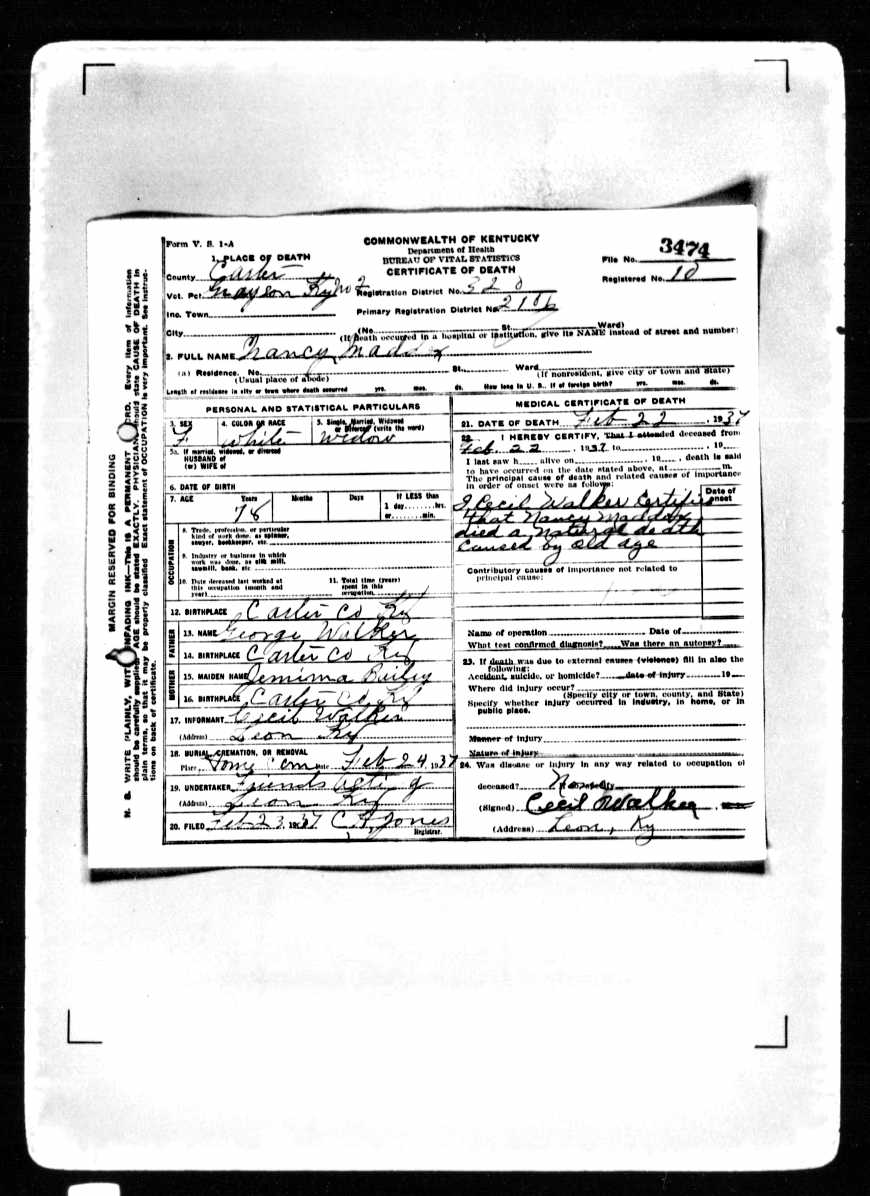 Form V. S. 1-A
COMMONWEALTH OF KENTUCKY
Department of Health
BUREAU OF VITAL STATISTICS
CERTIFICATE OF DEATH
File No. 3474
Registered No. 10
1. PLACE OF DEATH
County Carter
Vot. Pct. Grayson Ky No 2
Registration District No. 320
Inc. Town
Primary Registration District No. 2106
City (No. St. Ward)
(If death occurred in a hospital or institution, give its NAME instead of street and number)
2. FULL NAME Nancy Maddox
(a) Residence. No. St., Ward
(Usual place of abode) (If nonresident, give city or town and State)
Length of residence in city or town where death occurred yrs. mos. ds. How long in U. S., if of foreign birth? yrs. mos. ds.
PERSONAL AND STATISTICAL PARTICULARS
3. SEX 4. COLOR OR RACE 5. Single, Married, Widowed or Divorced (write the word)
F White Widow
5a. If married, widowed, or divorced
HUSBAND of
(or) WIFE of
6. DATE OF BIRTH
7. AGE Years Months Days If LESS than
1 day hrs.
or min.
78
OCCUPATION
8. Trade, profession, or particular
kind of work done, as spinner,
sawyer, bookkeeper, etc.
9. Industry or business in which
work was done, as silk mill,
sawmill, bank, etc
10. Date deceased last worked at
this occupation (month and
year)
11. Total time (years)
spent in this
occupation
12. BIRTHPLACE Carter Co Ky
FATHER
13. NAME George Walker
14. BIRTHPLACE Carter Co Ky
MOTHER
15. MAIDEN NAME Jemima Bailey
16. BIRTHPLACE Carter Co. Ky
17. INFORMANT Cecil Walker
(Address) Leon Ky
18. BURIAL, CREMATION, OR REMOVAL
Place Cem Date Feb 24, 1937
19. UNDERTAKER Friends acting
(Address) Leon Ky
20. FILED Feb 23, 1937 Jones
Registrar.
MEDICAL CERTIFICATE OF DEATH
21. DATE OF DEATH Feb 22, 1937
22. I HEREBY CERTIFY, That I attended deceased from
Feb. 22, 1937 to , 19
I last saw h alive on , 19 , death is said
to have occurred on the date stated above, at m.
The principal cause of death and related causes of importance
in order of onset were as follows:
Date of
onset
I Cecil Walker Certifies
that Nancy Maddox
died a natural death
Caused by old age
Contributory causes of importance not related to
principal cause:
Name of operation Date of
What test confirmed diagnosis? Was there an autopsy?
23. If death was due to external causes (violence) fill in also the
following:
Accident, suicide, or homicide? date of injury 19
Where did injury occur?
(Specify city or town, county, and State)
Specify whether injury occurred in industry, in home, or in
public place.
Manner of injury
Nature of injury
24. Was disease or injury in any way related to occupation of
deceased?
(Signed) Cecil Walker
(Address) Leon, Ky
MARGIN RESERVED FOR BINDING
N. B. WRITE PLAINLY, WITH UNFADING INK—This is A PERMANENT RECORD. Every item of information
should be carefully supplied. AGE should be stated EXACTLY. PHYSICIANS should state CAUSE OF DEATH in
plain terms, so that it may be properly classified. Exact statement of OCCUPATION is very important. See instruc-
tions on back of certificate.